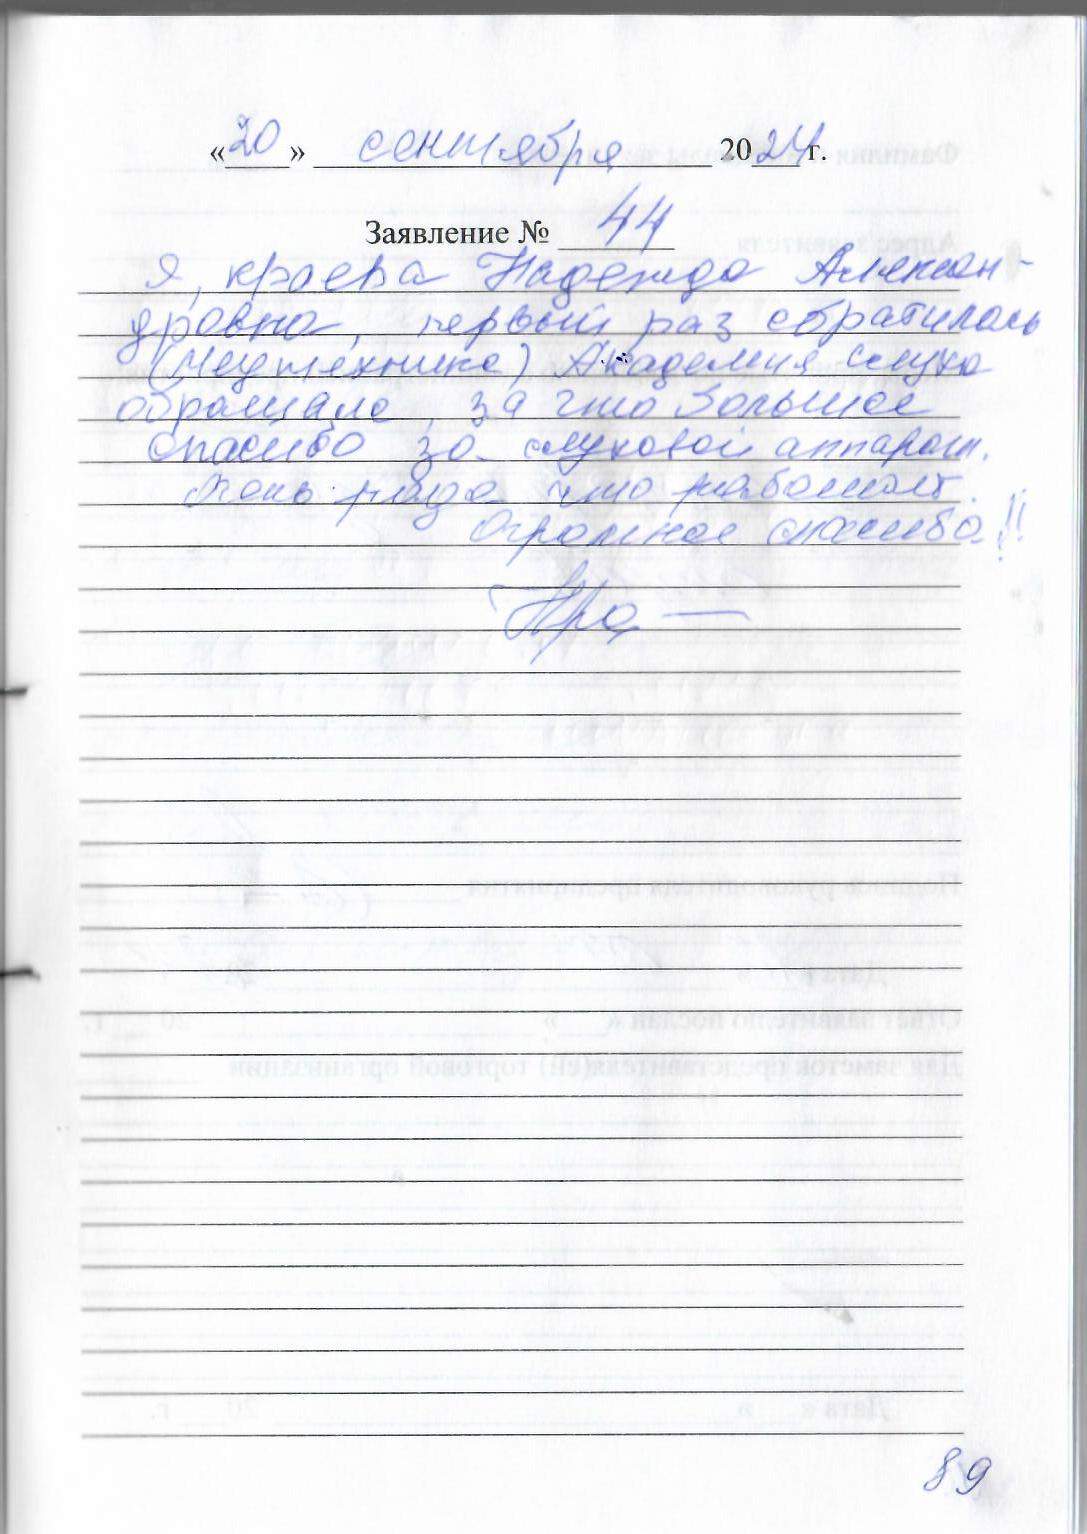 «20» сентября 2024 г.
Заявление № 44
Я, Краева Надежда Алексан-
дровна, первый раз обратилась
(Медтехника) Академия слуха
, за что большое
спасибо за слуховой аппарат.
Очень рада что работает.
Огромное спасибо!!!
89